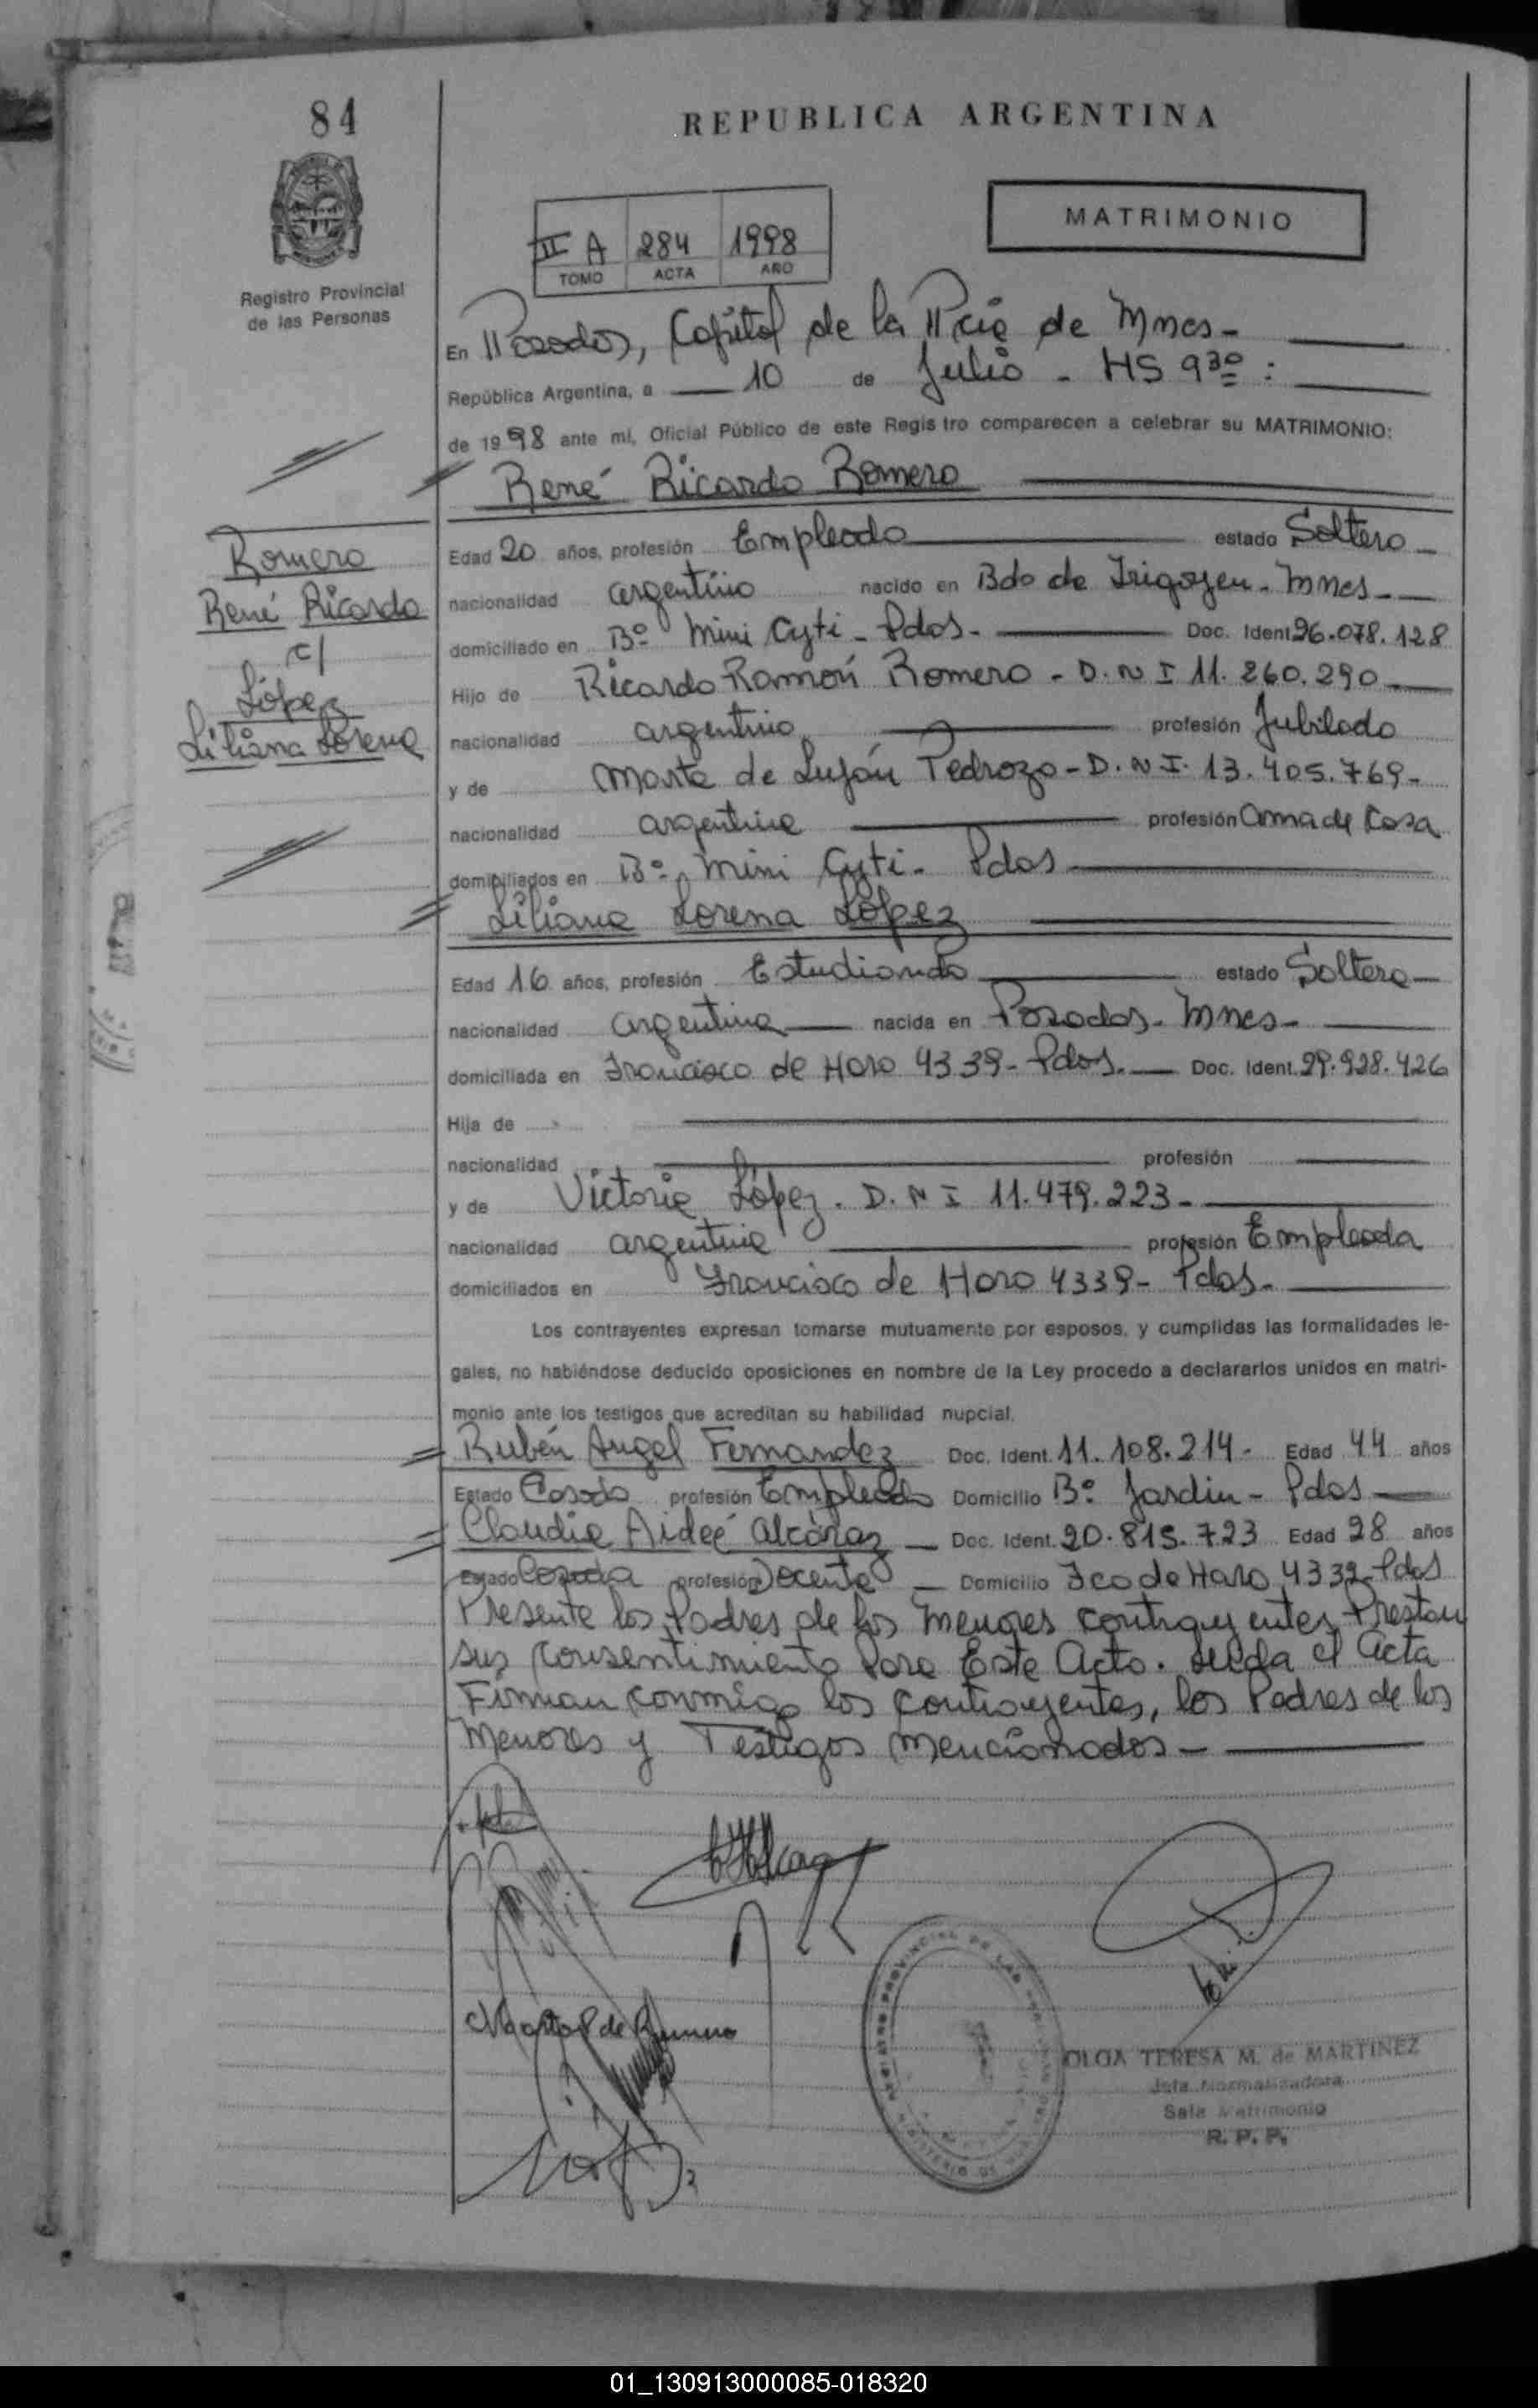 84
REPUBLICA ARGENTINA
MATRIMONIO
II A 284 1998
TOMO ACTA AÑO
Registro Provincial
de las Personas
En Posadas, Capital de la Pcia de Mnes-
República Argentina, a 10 de Julio - HS 9 30:
de 1998 ante mí, Oficial Público de este Registro comparecen a celebrar su MATRIMONIO:
René Ricardo Romero
Romero
René Ricardo
c/
López
Liliana Lorena
Edad 20 años, profesión Empleado estado Soltero-
nacionalidad argentino nacido en Bdo de Irigoyen - Mnes-
domiciliado en Bº Mini Cyti - Pdas- Doc. Ident. 26.078.128
Hijo de Ricardo Ramón Romero - D.N I 11.260.290-
nacionalidad argentino profesión Jubilado
y de Marta de Luján Pedrozo - D.N I. 13.405.769-
nacionalidad argentina profesión ama de Casa
domiciliados en Bº Mini Cyti - Pdas
Liliana Lorena López
Edad 16 años, profesión Estudiante estado Soltera-
nacionalidad argentina nacida en Posadas - Mnes-
domiciliada en Francisco de Haro 4339 - Pdas.- Doc. Ident. 29.928.426
Hija de
nacionalidad profesión
y de Victoria López - D.N I 11.479.223-
nacionalidad argentina profesión Empleada
domiciliados en Francisco de Haro 4339 - Pdas-
Los contrayentes expresan tomarse mutuamente por esposos, y cumplidas las formalidades le-
gales, no habiéndose deducido oposiciones en nombre de la Ley procedo a declararlos unidos en matri-
monio ante los testigos que acreditan su habilidad nupcial.
Rubén Angel Fernandez Doc. Ident. 11.108.214- Edad 44 años
Estado Casado profesión Empleado Domicilio Bº Jardin - Pdas
Claudia Aideé Alcáraz - Doc. Ident. 20.815.723 Edad 28 años
Estado Casada profesión Docente - Domicilio Fco de Haro 4339 - Pdas
Presente los Padres de los menores contrayentes Prestan
sus consentimiento para Este Acto. Leída el Acta
Firman conmigo los contrayentes, los Padres de los
Menores y Testigos mencionados-
Marta P de Romero
OLGA TERESA M. de MARTINEZ
Jefa Normalizadora
Sala Matrimonio
R. P. P.
01_130913000085-018320